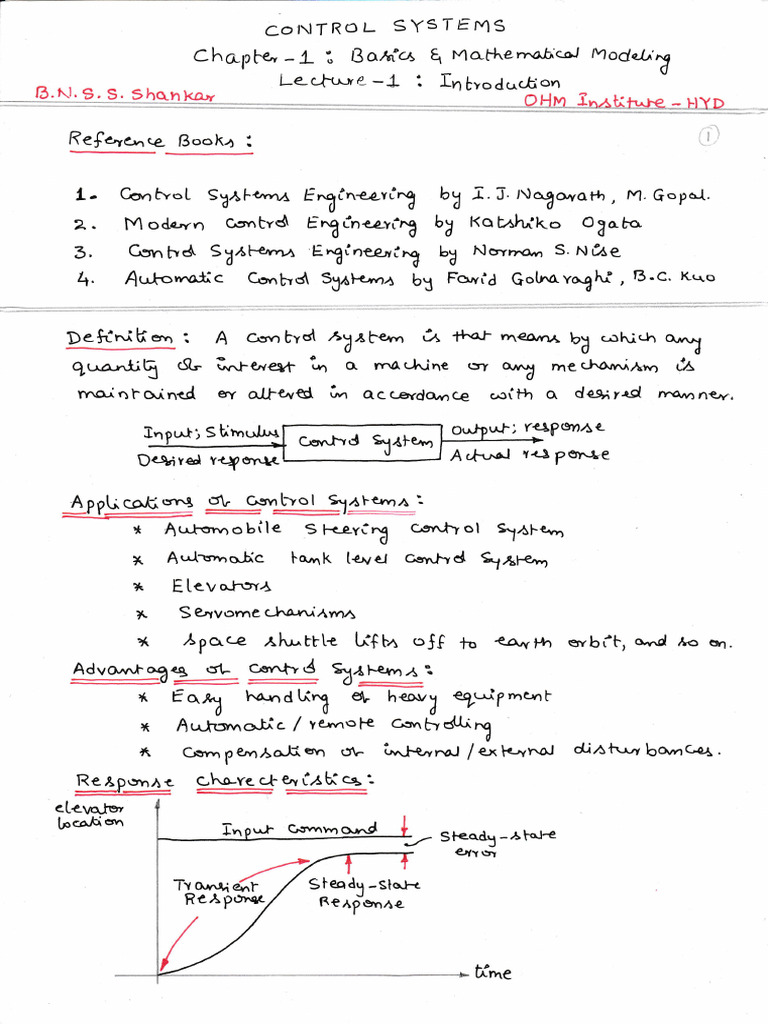 CONTROL SYSTEMS
Chapter-1 : Basics & Mathematical Modeling
Lecture-1 : Introduction
B.N.S.S. Shankar
OHM Institute - HYD
1
Reference Books :
1. Control Systems Engineering by I.J. Nagarath, M. Gopal.
2. Modern Control Engineering by Katshiko Ogata
3. Control Systems Engineering by Norman S. Nise
4. Automatic Control Systems by Farid Golnaraghi, B.C. Kuo
Definition : A control system is that means by which any
quantity of interest in a machine or any mechanism is
maintained or altered in accordance with a desired manner.
Input; Stimulus
Desired response
Control System
Output; response
Actual response
Applications of Control Systems :
* Automobile Steering control system
* Automatic tank level control system
* Elevators
* Servomechanisms
* Space shuttle lifts off to earth orbit, and so on.
Advantages of Control Systems :
* Easy handling of heavy equipment
* Automatic / remote controlling
* Compensation of internal/external disturbances.
Response Charecteristics :
elevator
location
Input Command
Steady-state
error
Transient
Response
Steady-State
Response
time